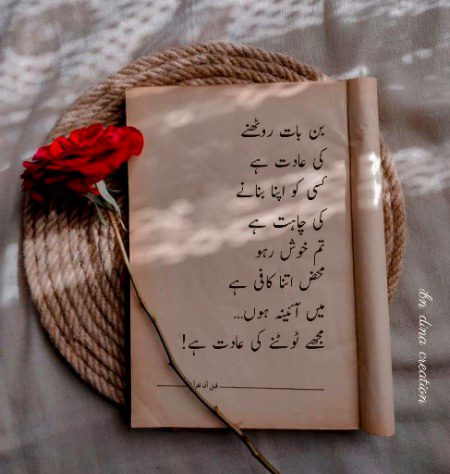 بن بات روٹھنے
کی عادت ہے
کسی کو اپنا بنانے
کی چاہت ہے
تم خوش رہو
محض اتنا کافی ہے
میں آئینہ ہوں...
مجھے ٹوٹنے کی عادت ہے!
قبل أن نقرأ
ibn dina creation